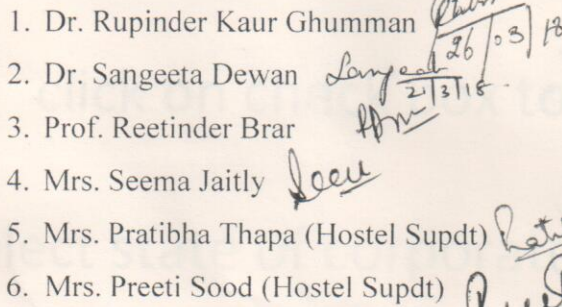 1. Dr. Rupinder Kaur Ghumman 26/03/18
2. Dr. Sangeeta Dewan Sangeeta 21/3/18
3. Prof. Reetinder Brar
4. Mrs. Seema Jaitly Seema
5. Mrs. Pratibha Thapa (Hostel Supdt)
6. Mrs. Preeti Sood (Hostel Supdt)